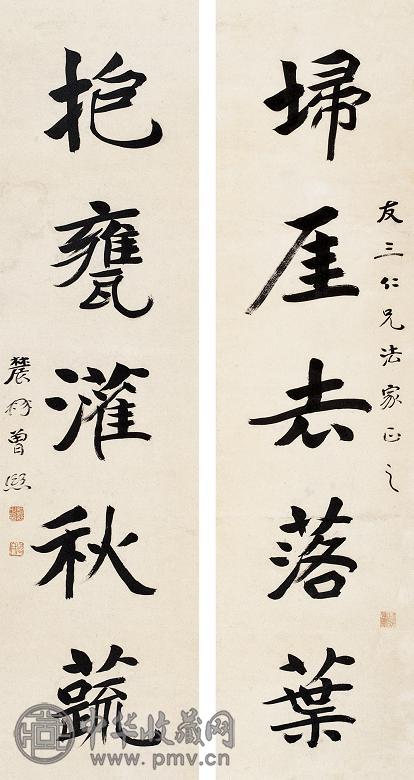 埽厓去落葉
友三仁兄法家正之
抱甕灌秋蔬
農髯曾熙
中华收藏网
www.pmv.cn